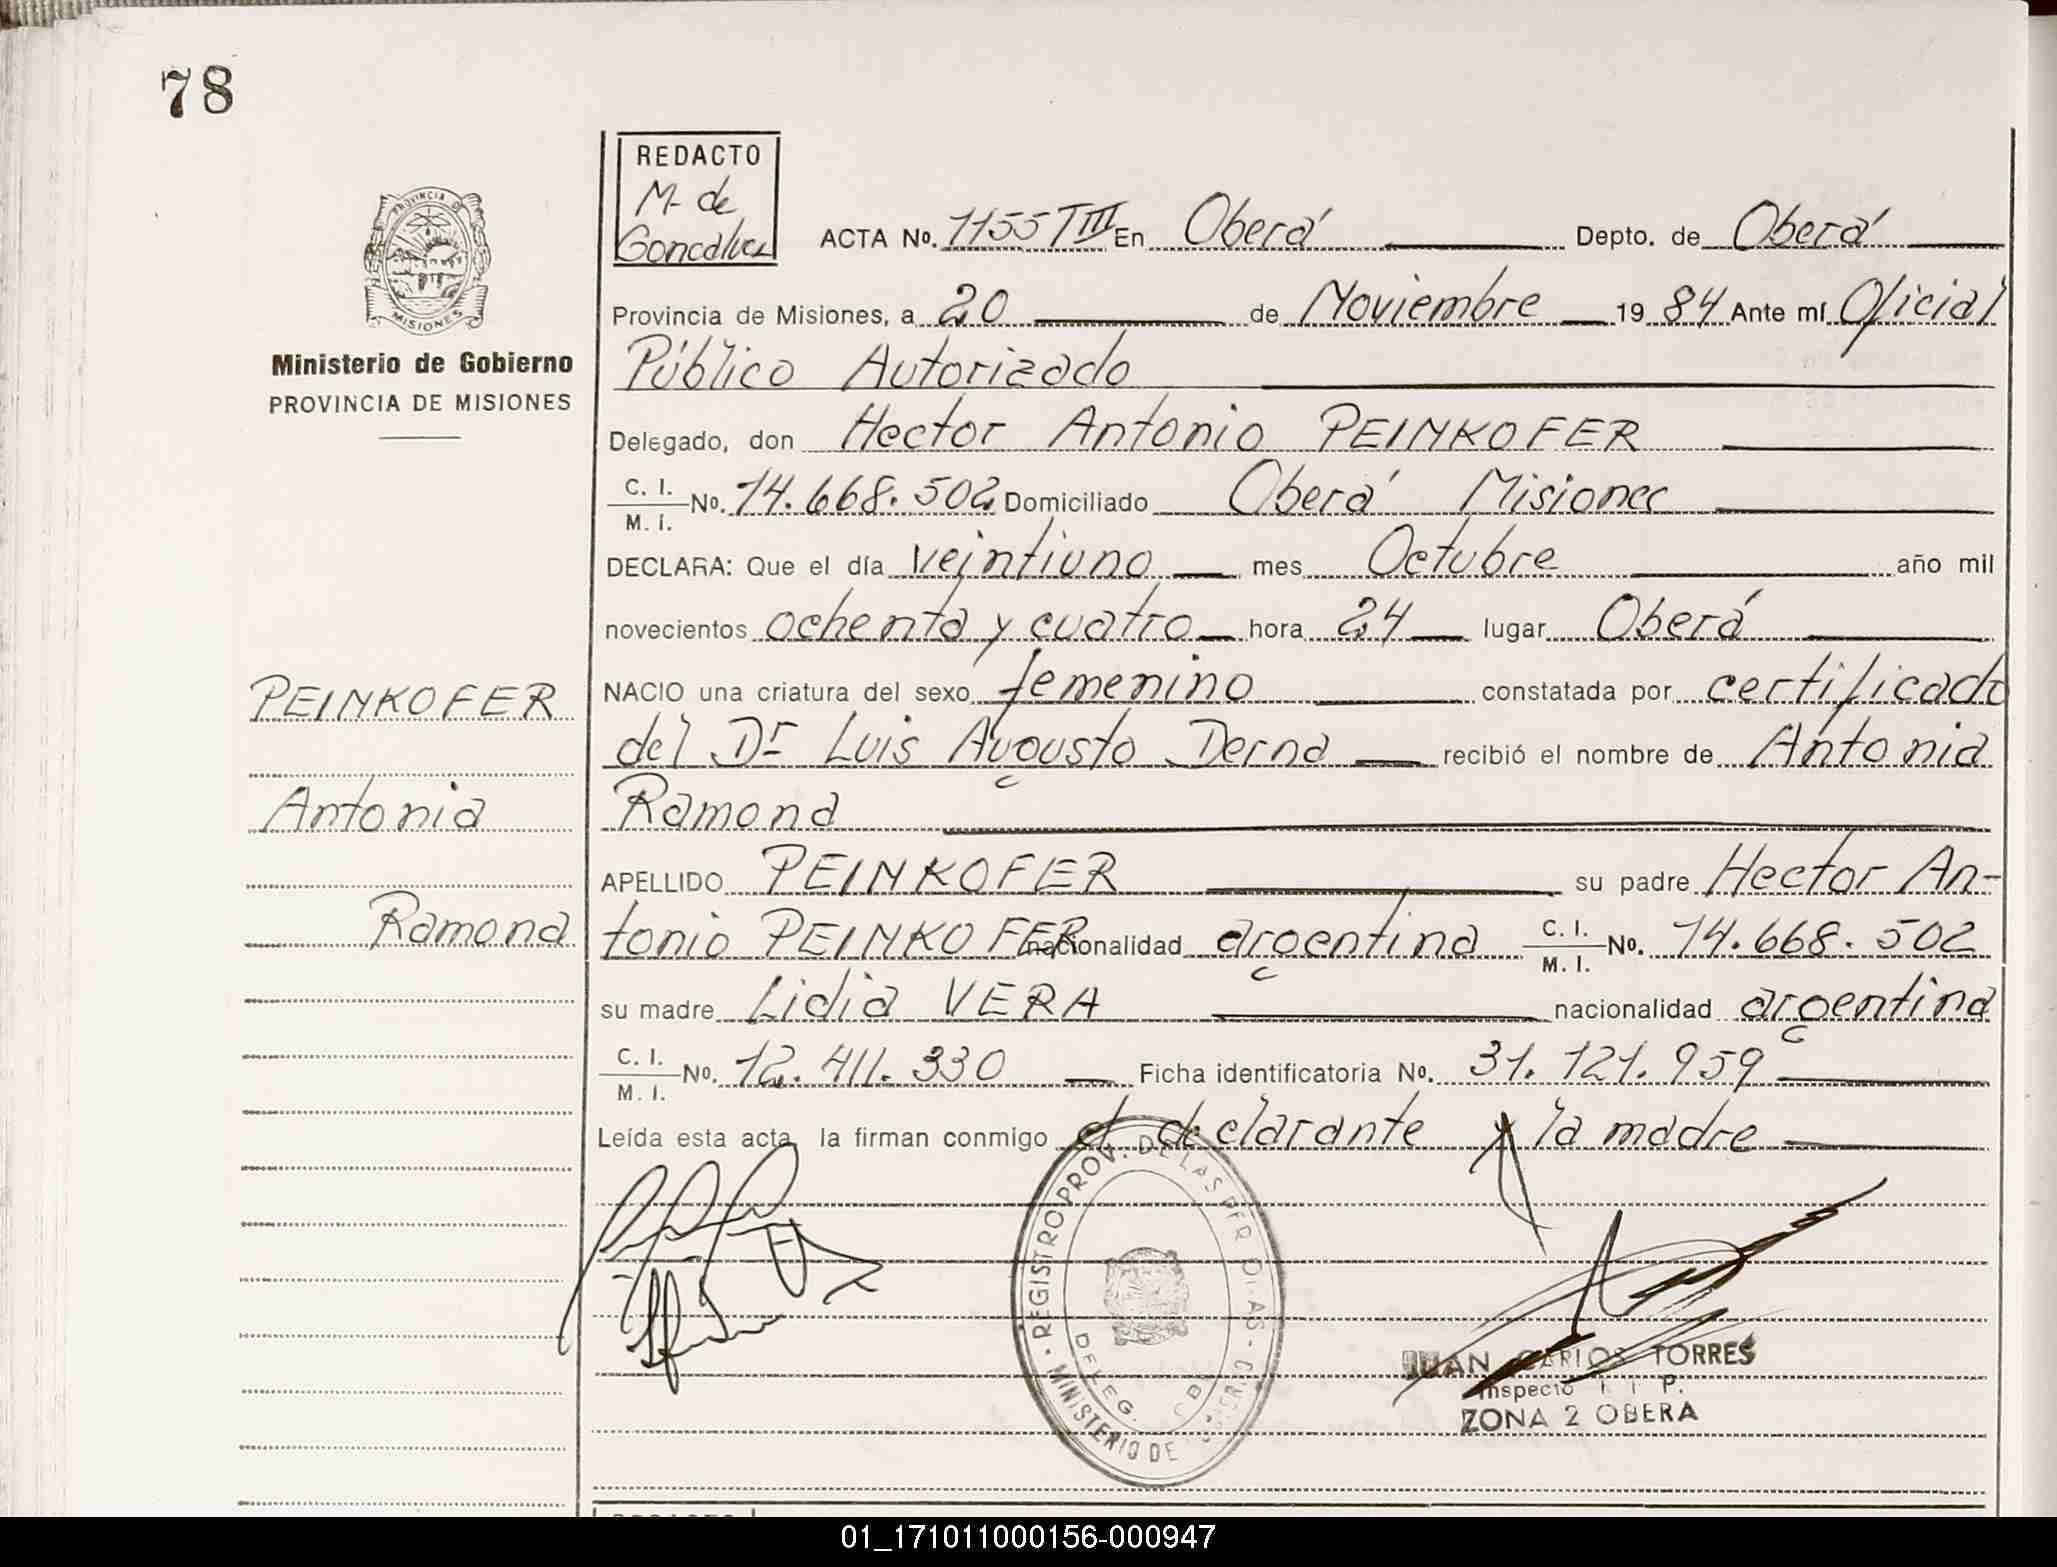 78
REDACTO
M. de
Goncalvez
PROVINCIA DE
MISIONES
Ministerio de Gobierno
PROVINCIA DE MISIONES
ACTA No. 1155 TIII En Oberá Depto. de Oberá
Provincia de Misiones, a 20 de Noviembre 1984 Ante mí Oficial
Público Autorizado
Delegado, don Hector Antonio PEINKOFER
C. I. / M. I. No. 14.668.502 Domiciliado Oberá Misiones
DECLARA: Que el día veintiuno mes Octubre año mil
novecientos ochenta y cuatro hora 24 lugar Oberá
NACIO una criatura del sexo femenino constatada por certificado
del Dr Luis Augusto Derna recibió el nombre de Antonia
Ramona
APELLIDO PEINKOFER su padre Hector An-
tonio PEINKOFER nacionalidad argentina C. I. / M. I. No. 14.668.502
su madre Lidia VERA nacionalidad argentina
C. I. / M. I. No. 12.411.330 Ficha identificatoria No. 31.121.959
Leída esta acta, la firman conmigo el declarante y la madre
PEINKOFER
Antonia
Ramona
REGISTRO PROV. DE LAS PER
MINISTERIO DE
DELEG.
JUAN CARLOS TORRES
ZONA 2 OBERA
01_171011000156-000947